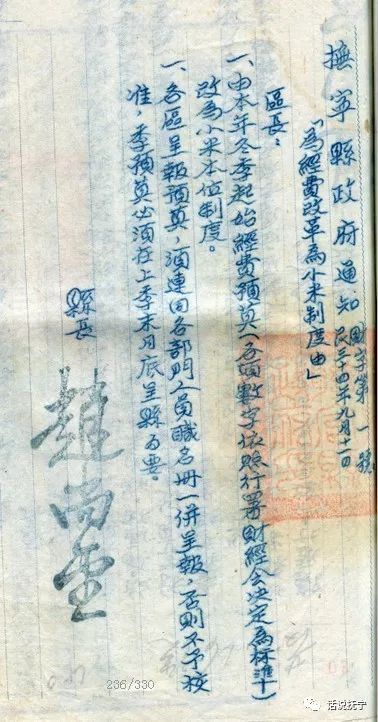 撫寧縣政府通知
財字第一號
民三十四年九月十一日
「為經費改革為小米制度由」
區長：
一、由本年冬季起始經費預算（各項數字依照行署財經会决定為标準）
改為小米本位制度。
一、各區呈報預算，須連同各部門人員職名冊一併呈報，否則不予核
准，季預算必須在上季末月底呈縣為要。
縣長
趙尚奎
236/330
话说抚宁